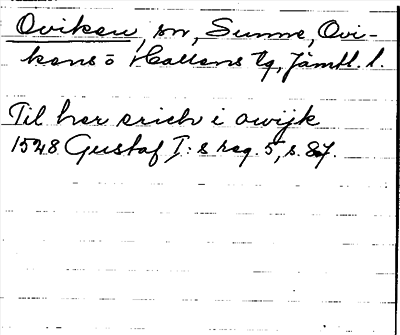 Oviken, sn, Sunne, Ovi-
kens o Hallens tg, Jämtl. l.
Til her erich i owijk
1528 Gustaf I:s reg. 5, s. 87.